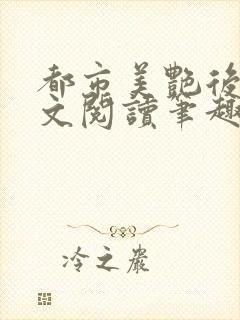 都市美艷後
文閱讀筆趣
冷之巖